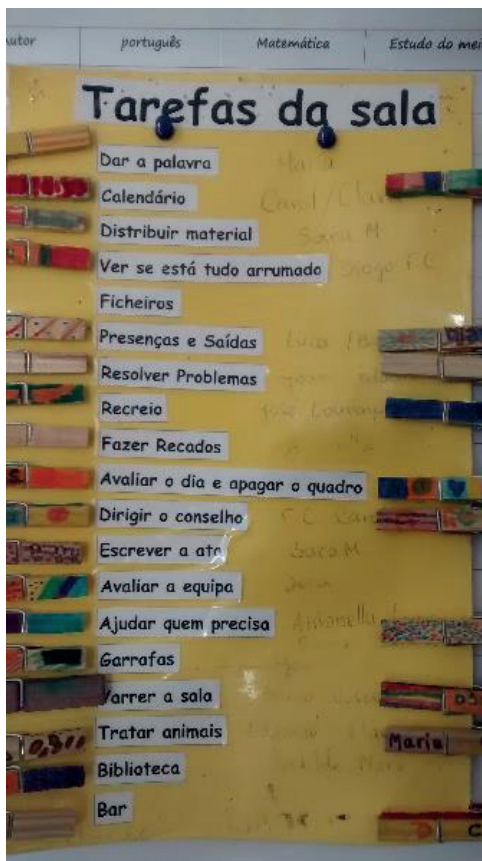 utor português Matemática Estudo do mei
Tarefas da sala
Dar a palavra Maria
Calendário Carol/Clara
Distribuir material Sara M
Ver se está tudo arrumado Diogo F.C
Ficheiros
Presenças e Saídas
Resolver Problemas
Recreio
Fazer Recados
Avaliar o dia e apagar o quadro
Dirigir o conselho
Escrever a ata Sara M
Avaliar a equipa
Ajudar quem precisa Antonella
Garrafas
Varrer a sala
Tratar animais Maria
Biblioteca
Bar